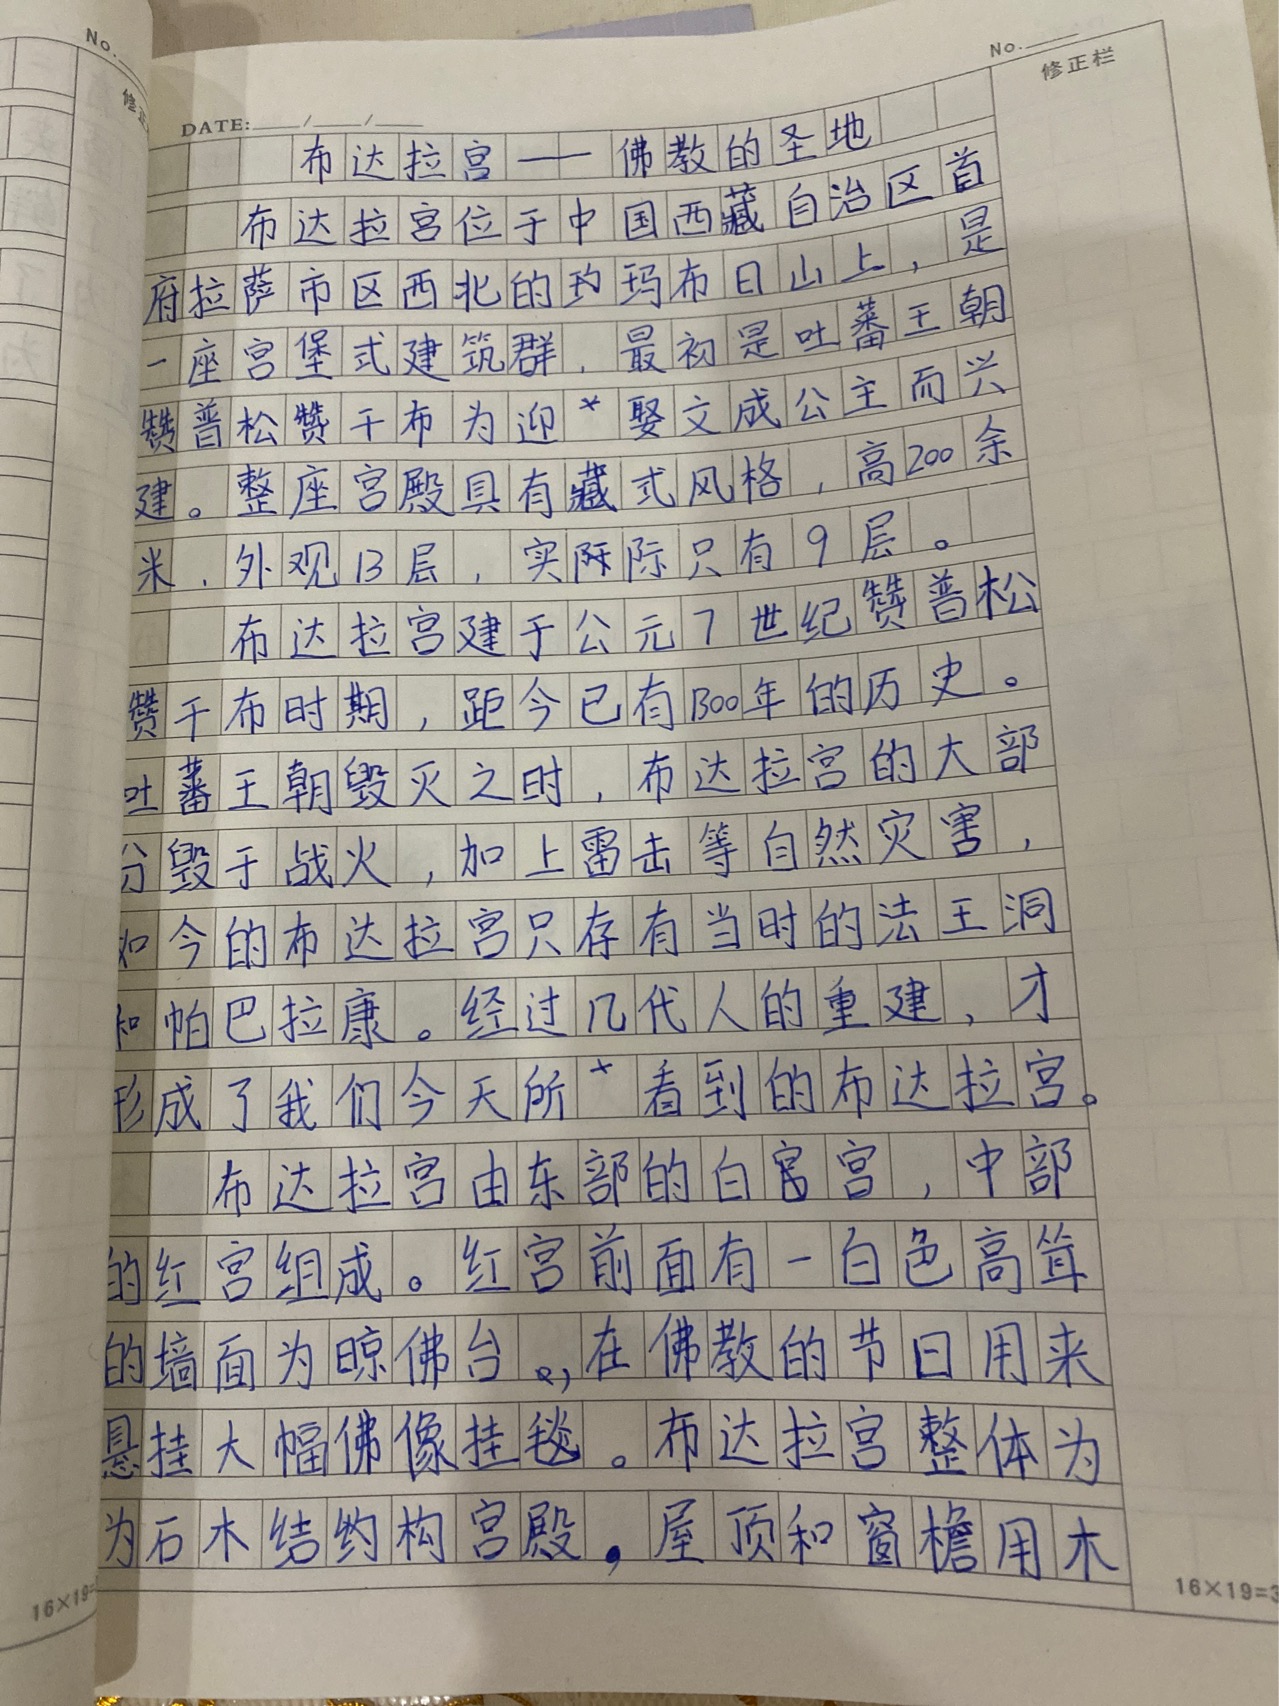 No.
No.
修正栏
DATE: / /
布达拉宫——佛教的圣地
布达拉宫位于中国西藏自治区首
府拉萨市区西北的玓玛布日山上，是
一座宫堡式建筑群，最初是吐蕃王朝
赞普松赞干布为迎*娶文成公主而兴
建。整座宫殿具有藏式风格，高200余
米，外观13层，实际际只有9层。
布达拉宫建于公元7世纪赞普松
赞干布时期，距今已有1300年的历史。
吐蕃王朝毁灭之时，布达拉宫的大部
分毁于战火，加上雷击等自然灾害，
如今的布达拉宫只存有当时的法王洞
和帕巴拉康。经过几代人的重建，才
形成了我们今天所*看到的布达拉宫。
布达拉宫由东部的白宫宫，中部
的红宫组成。红宫前面有一白色高耸
的墙面为晾佛台。，在佛教的节日用来
悬挂大幅佛像挂毯。布达拉宫整体为
为石木结构构宫殿，屋顶和窗檐用木
16×19=
16×19=3